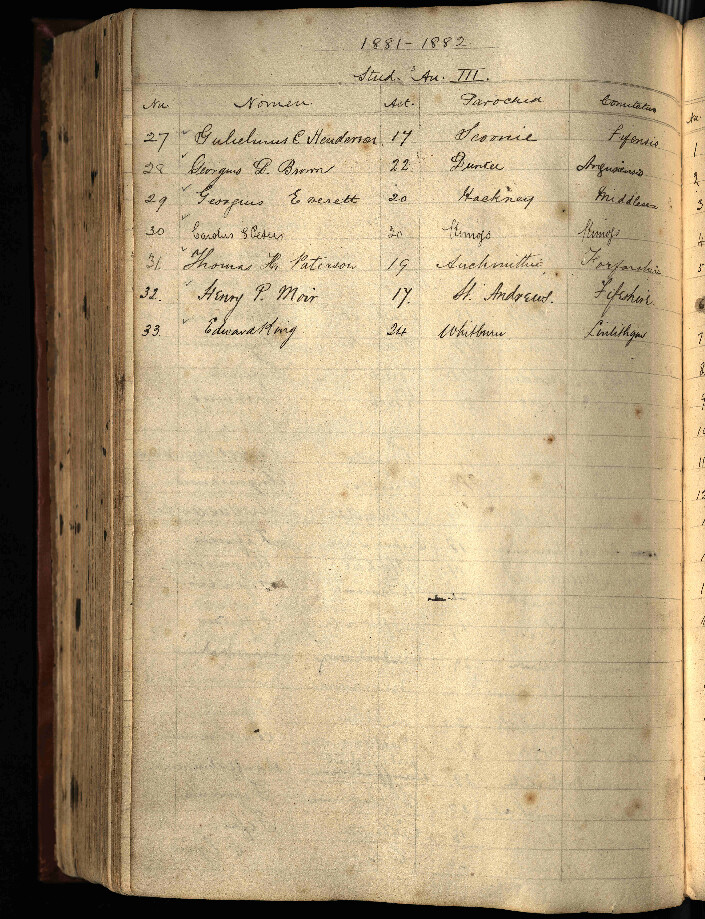 1881-1882
Stud. An. III.
No. Nomen Aet. Parochia Comitatus
27 Gulielmus C Henderson 17 Scoonie Fifensis
28 Georgius D. Brown 22 Dundee Angusiensis
29 Georgius Everett 20 Hackney Middlesex
30 20
31. Thomas Paterson 19 Auchmithie Forfarshire
32. Henry P. Moir 17. St. Andrews. Fifeshire
33. Edward King 24 Whitburn Linlithgow
1
2
3
4
5
6
7
8
9
10
11
12